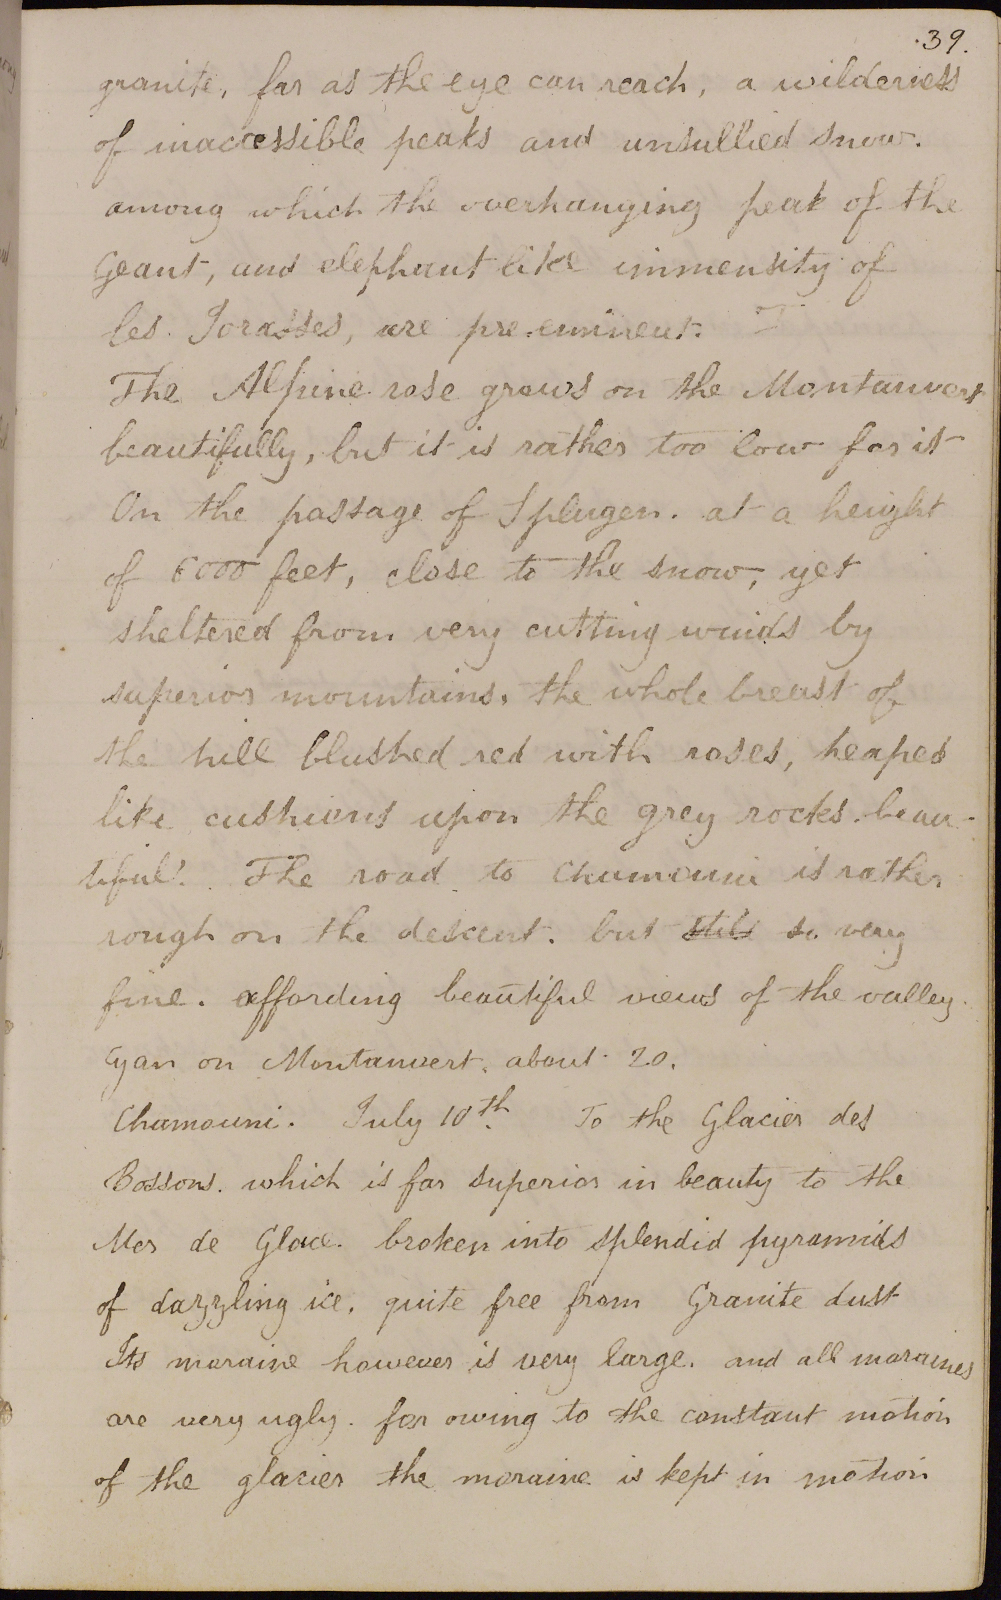 .39.
granite, far as the eye can reach, a wilderness
of inaccessible peaks and unsullied snow.
among which the overhanging peak of the
Geant, and elephant like immensity of
les Jorasses, are pre-eminent. T
The Alpine rose grows on the Montanvert
beautifully, but it is rather too low for it
On the passage of Splugen. at a height
of 6000 feet, close to the snow, yet
sheltered from very cutting winds by
superior mountains. the whole breast of
the hill blushed red with roses, heaped
like cushions upon the grey rocks. beau-
tiful! The road to Chamouni is rather
rough on the descent. but still so very
fine. affording beautiful views of the valley.
Cyan on Montanvert. about 20.
Chamouni. July 10th. To the Glacier des
Bossons. which is far superior in beauty to the
Mer de Glace. broken into splendid pyramids
of dazzling ice. quite free from Granite dust
Its moraine however is very large. and all moraines
are very ugly. for owing to the constant motion
of the glacier the moraine is kept in motion